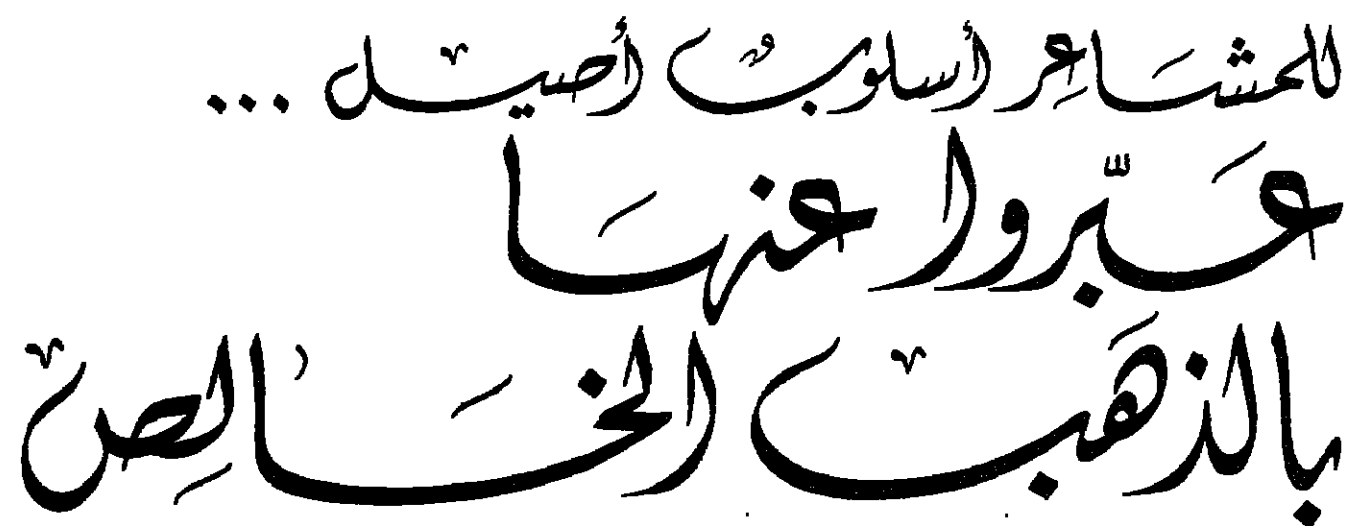 للمشَاعِر أسلوبٌ أصيل ...
عَبّروا عنهَا
بالذهَب الخَالِص